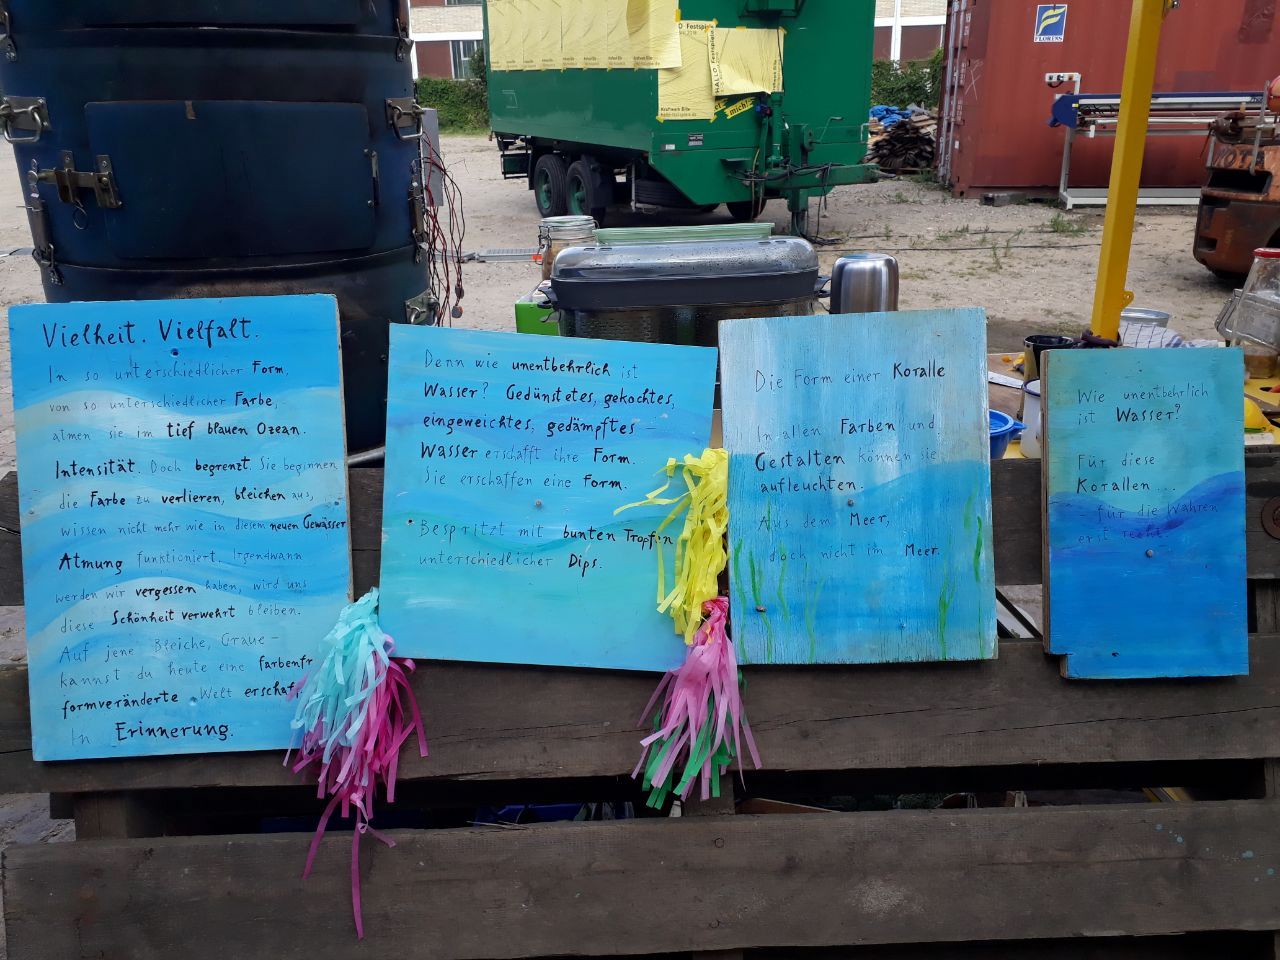 Vielheit. Vielfalt.
In so unterschiedlicher Form,
von so unterschiedlicher Farbe,
atmen sie im tief blauen Ozean.
Intensität. Doch begrenzt. Sie beginnen
die Farbe zu verlieren, bleichen aus,
wissen nicht mehr wie in diesem neuen Gewässer
Atmung funktioniert. Irgendwann
werden wir vergessen haben, wird uns
diese Schönheit verwehrt bleiben.
Auf jene Bleiche, Graue –
kannst du heute eine farbenfr
formveränderte Welt erschaf
In Erinnerung.
Denn wie unentbehrlich ist
Wasser? Gedünstetes, gekochtes,
eingeweichtes, gedämpftes –
Wasser erschafft ihre Form.
Sie erschaffen eine Form.
Bespritzt mit bunten Tropfen
unterschiedlicher Dips.
Die Form einer Koralle
In allen Farben und
Gestalten können sie
aufleuchten.
Aus dem Meer,
doch nicht im Meer.
Wie unentbehrlich
ist Wasser?
Für diese
Korallen...
– für die Wahren
erst recht.
FLORENS
HALLO Festspiele
Kraftwerk Bille
mich!